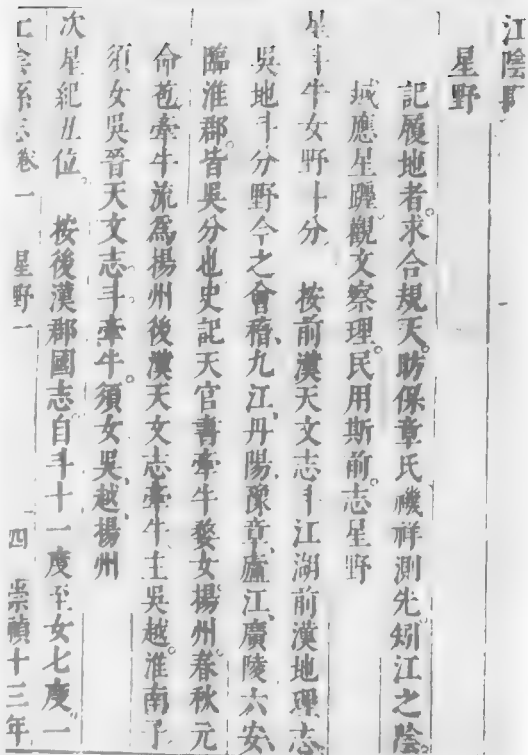 江陰縣
星野
記履地者求合規天昉保章氏禨祥測先矧江之陰
域應星躔觀文察理民用斯前志星野
星斗牛女野十分　按前漢天文志斗江湖前漢地理志
吳地斗分野今之會稽九江丹陽豫章廬江廣陵六安
臨淮郡皆吳分也史記天官書牽牛婺女揚州春秋元
命苞牽牛流爲揚州後漢天文志牽牛主吳越淮南子
須女吳晉天文志斗牽牛須女吳越揚州
次星紀丑位　按後漢郡國志自斗十一度至女七度一
江陰縣志卷一　星野一　四　崇禎十三年